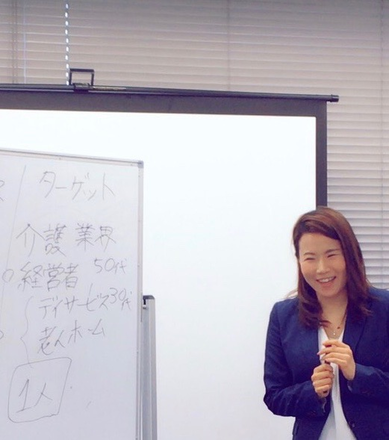 ターゲット
介護業界
経営者 50代
デイサービス 30代
老人ホーム
1人